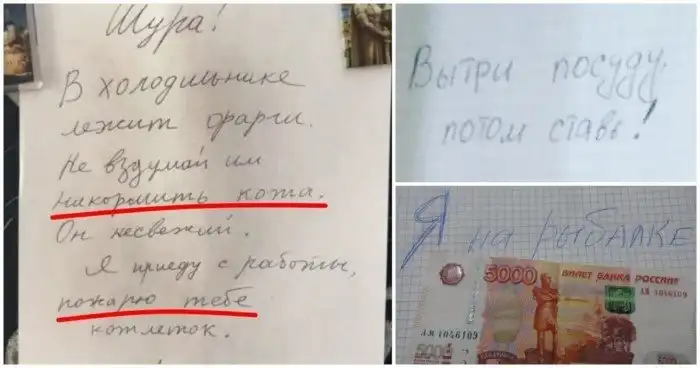 Шура!
В холодильнике
лежит фарш.
Не вздумай им
накормить кота.
Он несвежий.
Я приеду с работы,
пожарю тебе
котлеток.
Вытри посуду,
потом ставь!
Я на рыбалке
5000
БИЛЕТ БАНКА РОССИИ
АМ 1046109
АМ 1046109
5000